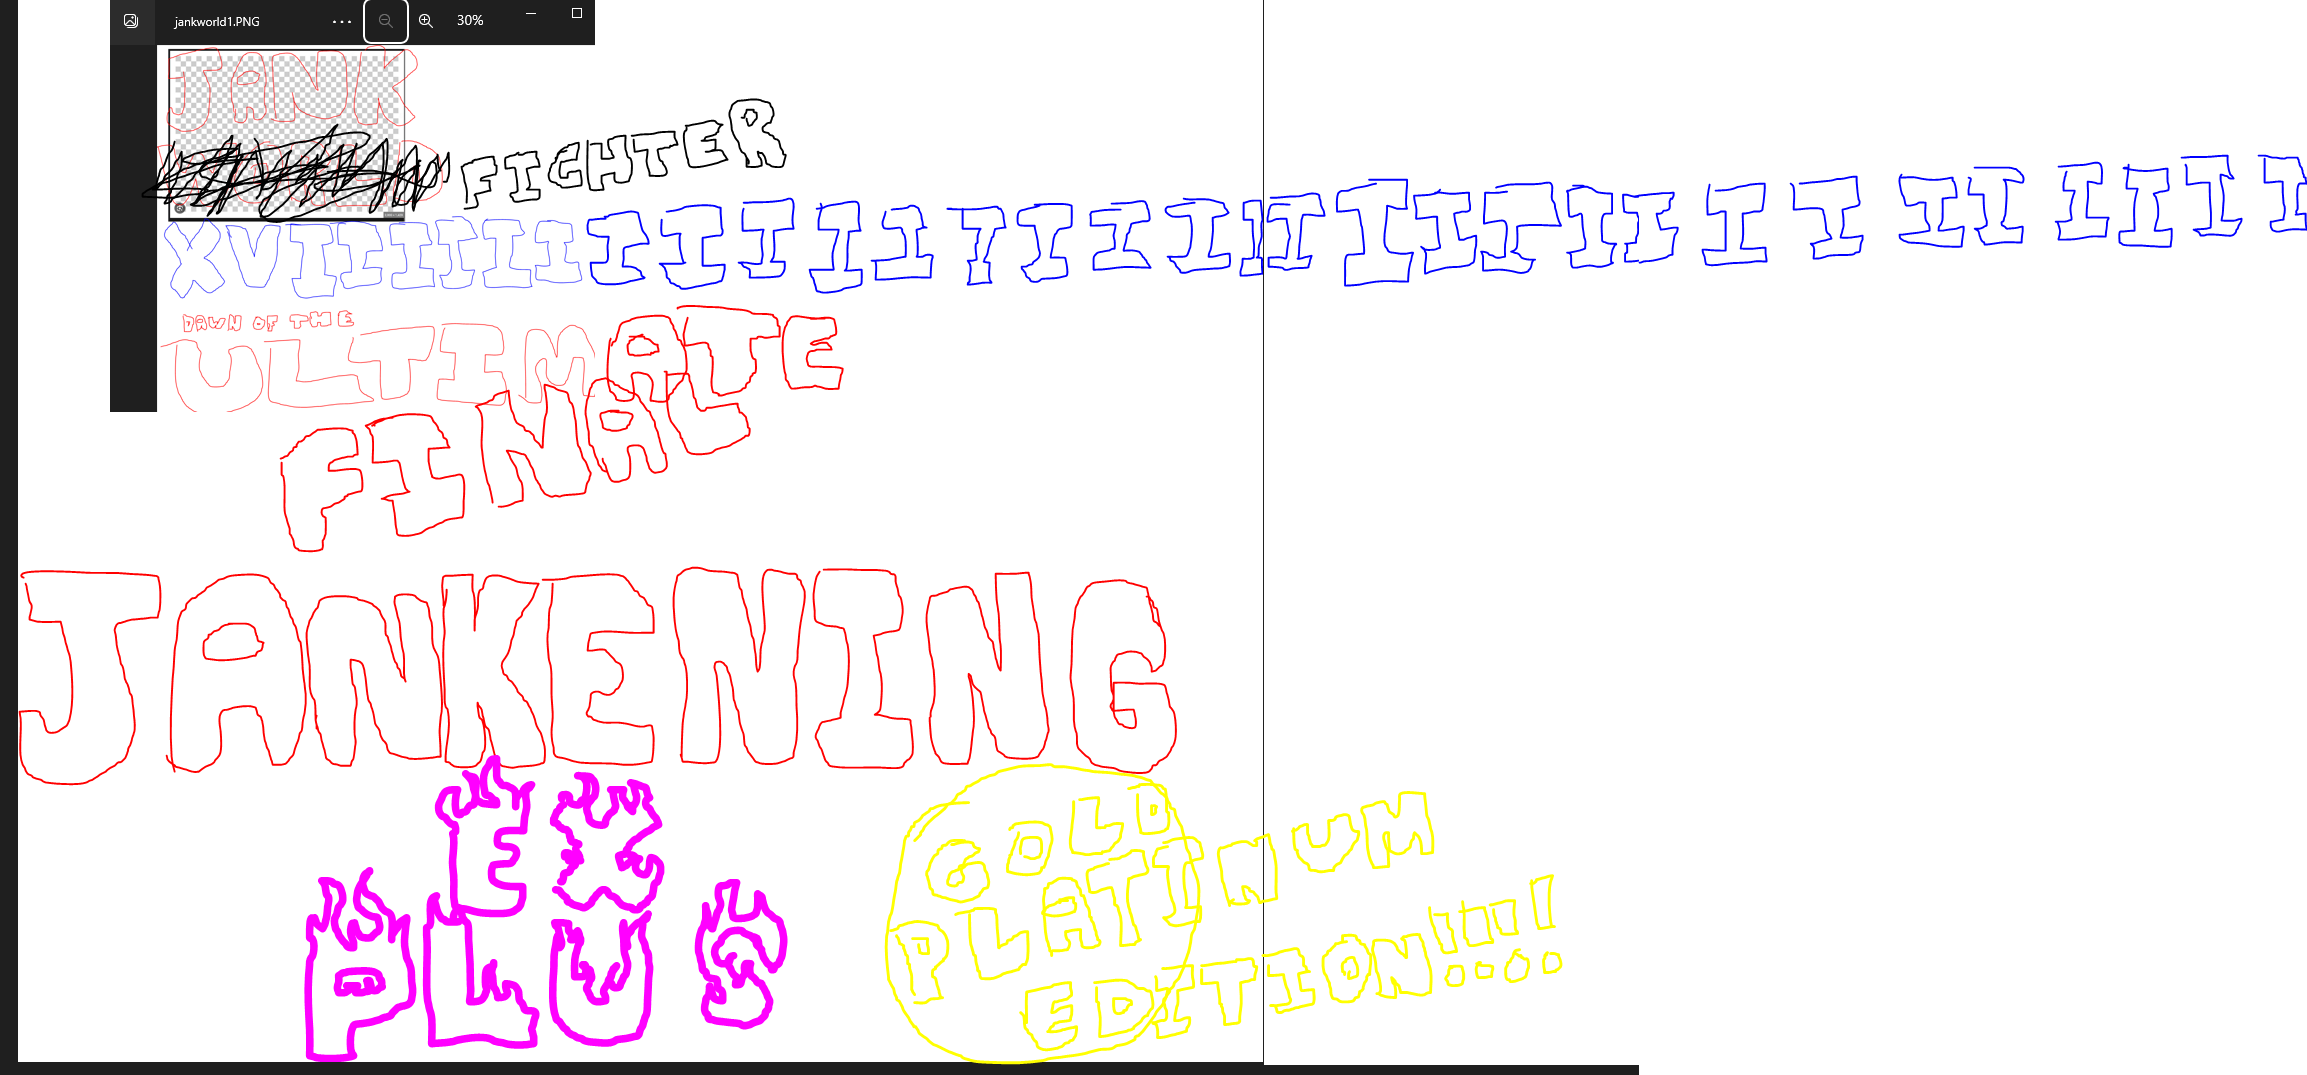 jankworld1.PNG ... 30%
JANK
FIGHTER
XVIIIIIIIIIIIIIIIIIIIIIIIIIIIIII
DAWN OF THE
ULTIMATE
FINAL
JANKENING
EX
PLUS
GOLD
PLATINUM
EDITION!!!!